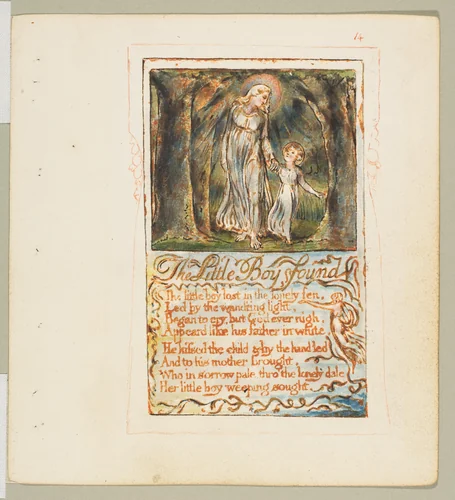 14
The Little Boy found
The little boy lost in the lonely fen,
Led by the wand'ring light,
Began to cry, but God ever nigh,
Appeard like his father in white.
He kissed the child & by the hand led
And to his mother brought,
Who in sorrow pale, thro' the lonely dale
Her little boy weeping sought.